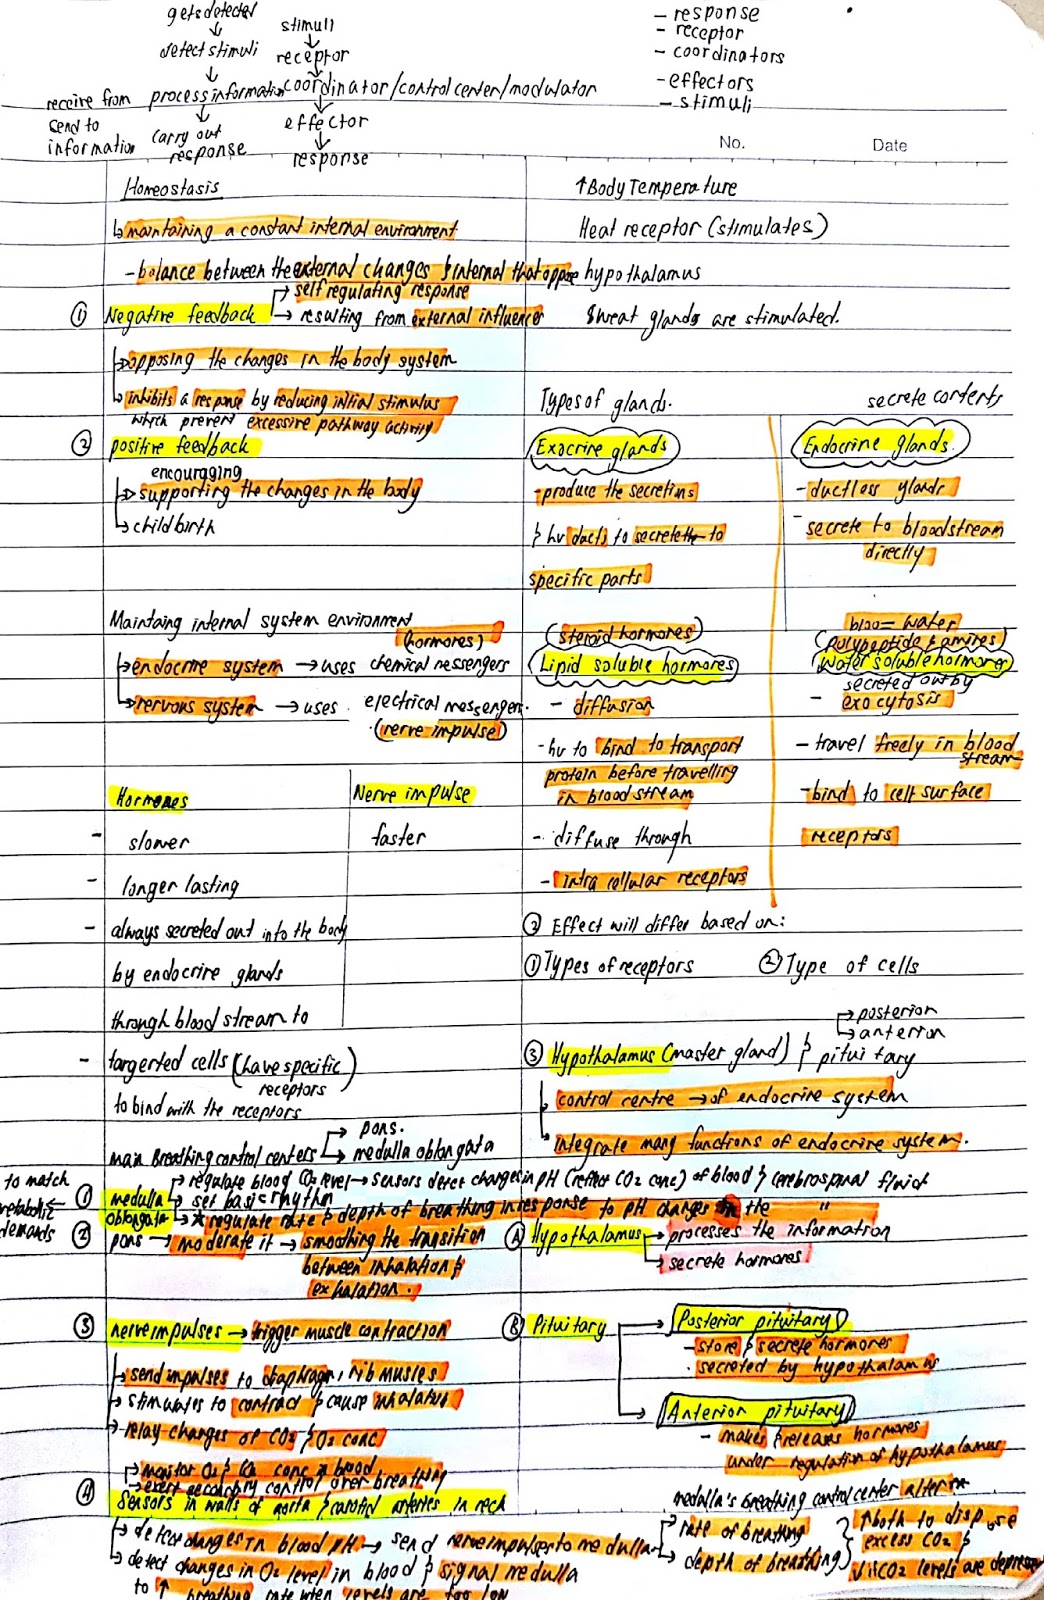 gets detected
detect stimuli
process information
carry out
response
receive from
send to
information
stimuli
receptor
coordinator/control center/modulator
effector
response
- response
- receptor
- coordinators
- effectors
- stimuli
No.
Date
Homeostasis
maintaining a constant internal environment
- balance between the external changes & internal that oppose
① Negative feedback
self regulating response
resulting from external influence
opposing the changes in the body system
inhibits a response by reducing initial stimulus
which prevent excessive pathway activity
② positive feedback
encouraging
supporting the changes in the body
childbirth
Maintaing internal system environment
(hormones)
endocrine system → uses chemical messengers
nervous system → uses electrical messengers.
(nerve impulse)
Hormones
- slower
- longer lasting
- always secreted out into the body
by endocrine glands
through blood stream to
- targerted cells (have specific
receptors)
to bind with the receptors
Nerve impulse
faster
main Breathing control centers
pons.
medulla oblongata
to match
metabolic
demands
① medulla
oblongata
regulate blood O₂ level → sensors detect changes in pH (reflect CO2 conc) of blood & cerebrospinal fluid
set basic rhythm
* regulate rate & depth of breathing in response to pH changes in the "
② pons → moderate it → smoothing the transition
between inhalation &
exhalation.
③ nerve impulses → trigger muscle contraction
send impulses to diaphragm, rib muscles
stimulates to contract & cause inhalation
relay changes of CO2 & O2 conc
monitor O2 & CO2 conc in blood
exert secondary control over breathing
④ Sensors in walls of aorta & carotid arteries in neck
detect changes in blood pH → send nerve impulses to medulla
detect changes in O2 level in blood & signal medulla
to ↑ breathing rate when levels are too low
↑Body Temperature
Heat receptor (stimulates)
hypothalamus
Sweat glands are stimulated.
Types of glands.
secrete contents
Exocrine glands
- produce the secretions
& hv ducts to secrete to
specific parts
Endocrine glands.
- ductless glands
- secrete to bloodstream
directly
(steroid hormones)
Lipid soluble hormones
- diffusion
- hv to bind to transport
protein before travelling
in blood stream
- diffuse through
- intra cellular receptors
blood = water
(polypeptide & amines)
Water soluble hormones
secreted out by
- exocytosis
- travel freely in blood
stream
- bind to cell surface
receptors
② Effect will differ based on:
① Types of receptors
② Type of cells
③ Hypothalamus (master gland) & pituitary
posterior
anterior
control centre → of endocrine system
integrate many functions of endocrine system.
Ⓐ Hypothalamus
processes the information
secrete hormones
Ⓑ Pituitary
Posterior pituitary
- store & secrete hormones
. secreted by hypothalamus
Anterior pituitary
- makes & releases hormones
under regulation of hypothalamus
medulla's breathing control center alter
rate of breathing
depth of breathing
↑ both to dispose
excess CO2 &
↓ if CO2 levels are depressed